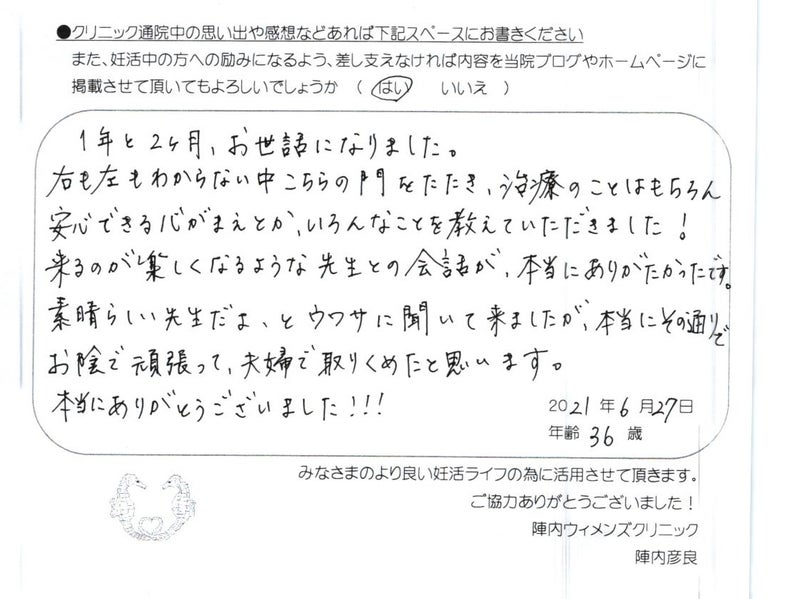 ●クリニック通院中の思い出や感想などあれば下記スペースにお書きください
また、妊活中の方への励みになるよう、差し支えなければ内容を当院ブログやホームページに
掲載させて頂いてもよろしいでしょうか （ はい いいえ ）
1年と2ヶ月、お世話になりました。
右も左もわからない中こちらの門をたたき、治療のことはもちろん
安心できる心がまえとか、いろんなことを教えていただきました！
来るのが楽しくなるような先生との会話が、本当にありがたかったです。
素晴らしい先生だよ、とウワサに聞いて来ましたが、本当にその通りで
お陰で頑張って、夫婦で取りくめたと思います。
本当にありがとうございました！！！
2021年6月27日
年齢 36 歳
みなさまのより良い妊活ライフの為に活用させて頂きます。
ご協力ありがとうございました！
陣内ウィメンズクリニック
陣内彦良